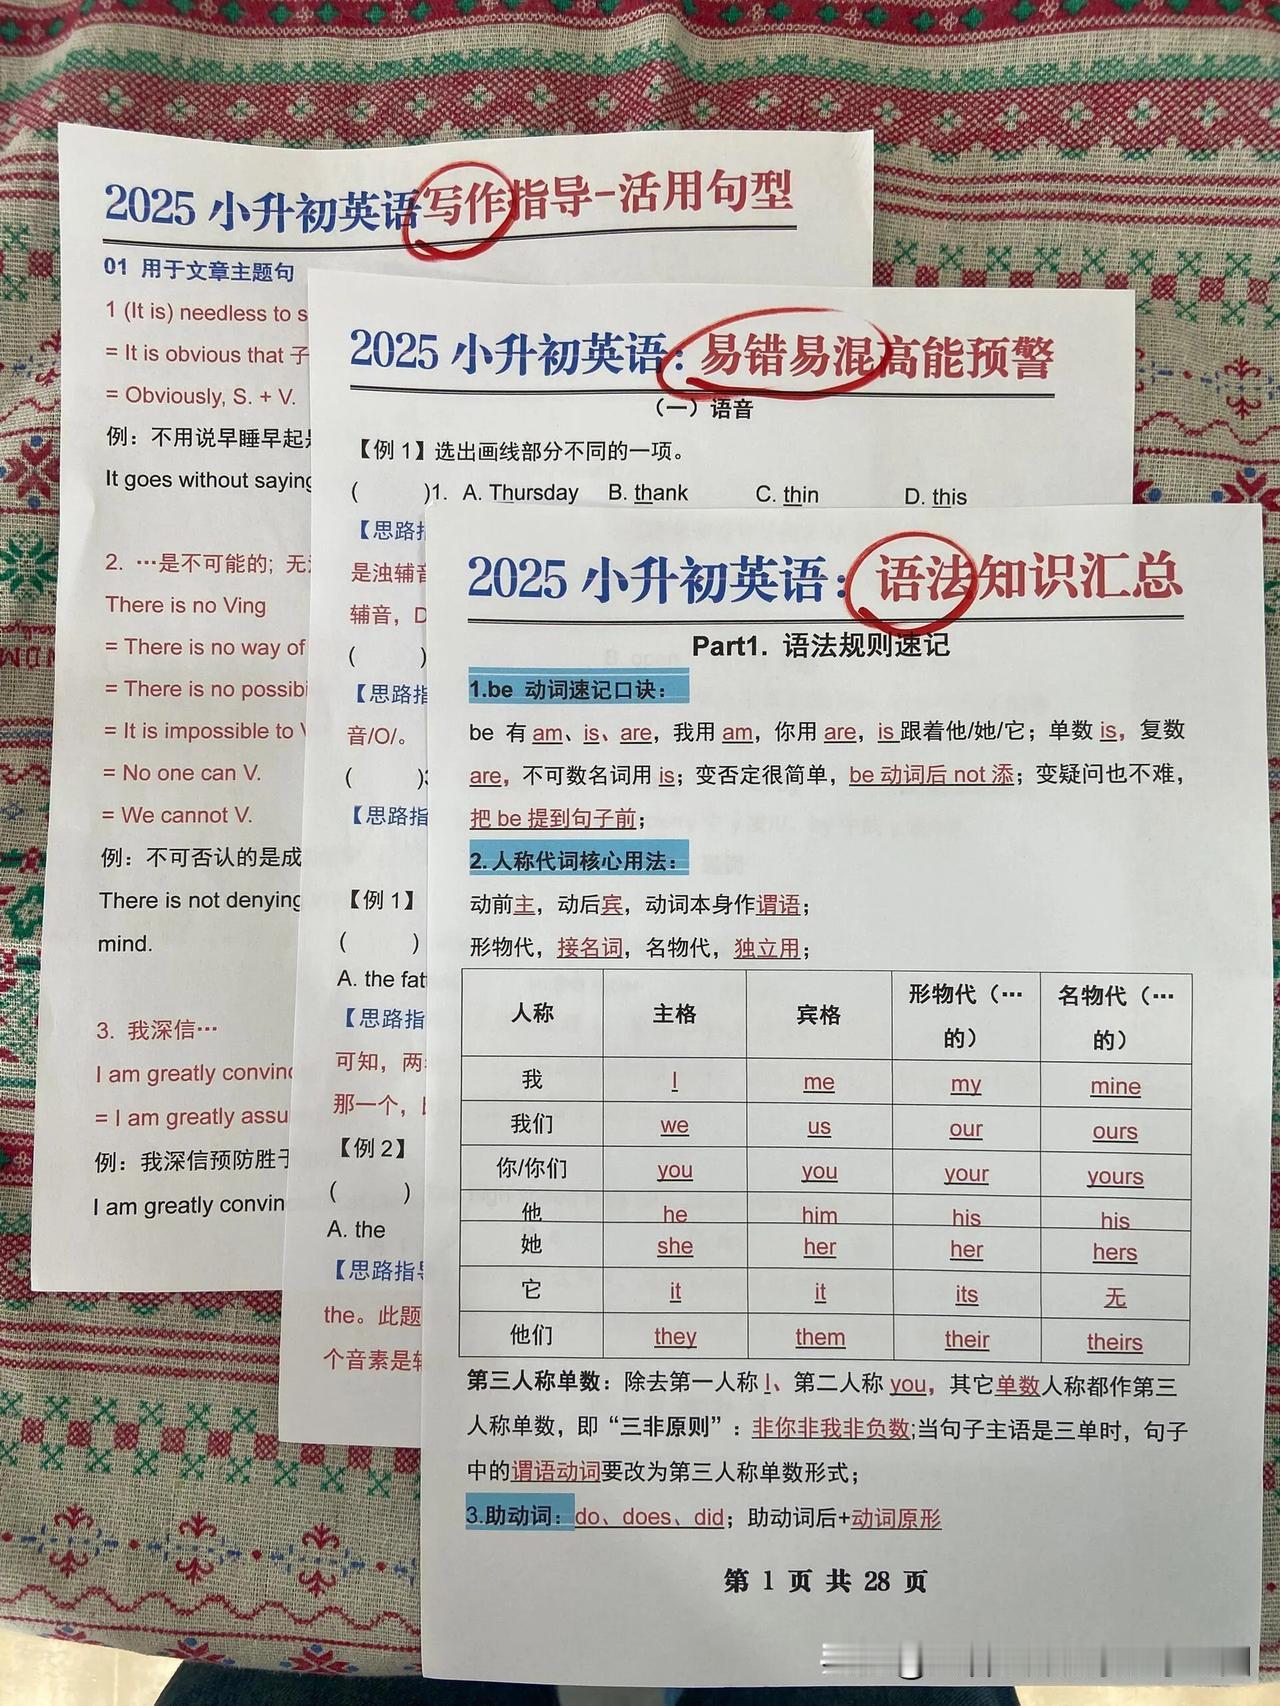 2025 小升初英语写作指导-活用句型
01 用于文章主题句
1 (It is) needless to s
= It is obvious that 子
= Obviously, S. + V.
例：不用说早睡早起是
It goes without saying
2. …是不可能的; 无法
There is no Ving
= There is no way of
= There is no possibi
= It is impossible to V
= No one can V.
= We cannot V.
例：不可否认的是成
There is not denying
mind.
3. 我深信…
I am greatly convinc
= I am greatly assu
例：我深信预防胜于
I am greatly convin
2025 小升初英语：易错易混高能预警
（一）语音
【例 1】选出画线部分不同的一项。
( )1. A. Thursday B. thank C. thin D. this
【思路指
是浊辅音
辅音，D
( )
【思路指
音/O/。
( )3
【思路指
【例 1】
( )
A. the fat
【思路指
可知，两
那一个，比
【例 2】
( )
A. the
【思路指导
the。此题
个音素是辅
2025 小升初英语：语法知识汇总
Part1. 语法规则速记
1.be 动词速记口诀：
be 有 am、is、are，我用 am，你用 are，is 跟着他/她/它；单数 is，复数
are，不可数名词用 is；变否定很简单，be 动词后 not 添；变疑问也不难，
把 be 提到句子前；
2.人称代词核心用法：
动前主，动后宾，动词本身作谓语；
形物代，接名词，名物代，独立用；
人称 主格 宾格 形物代（…的） 名物代（…的）
我 I me my mine
我们 we us our ours
你/你们 you you your yours
他 he him his his
她 she her her hers
它 it it its 无
他们 they them their theirs
第三人称单数：除去第一人称 I、第二人称 you，其它单数人称都作第三
人称单数，即“三非原则”：非你非我非负数;当句子主语是三单时，句子
中的谓语动词要改为第三人称单数形式；
3.助动词：do、does、did；助动词后+动词原形
第 1 页 共 28 页